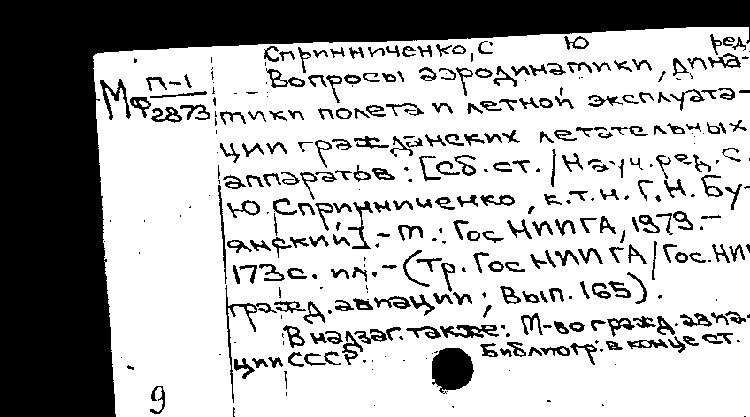 Спринниченко, С Ю ред.
П-1
Мф 2873
Вопросы аэродинамики, дина-
мики полета и летной эксплуата-
ции гражданских летательных
аппаратов : [Сб. ст. / Науч. ред. С.
Ю. Спринниченко, к.т.н. Г. Н. Бу-
янский]. - М.: Гос НИИ ГА, 1979. -
173 с. ил. - (Тр. Гос НИИ ГА / Гос. НИИ
гражд. авиации ; Вып. 165).
В надзаг. также: М-во гражд. авиа-
ции СССР. Библиогр. в конце ст.
9